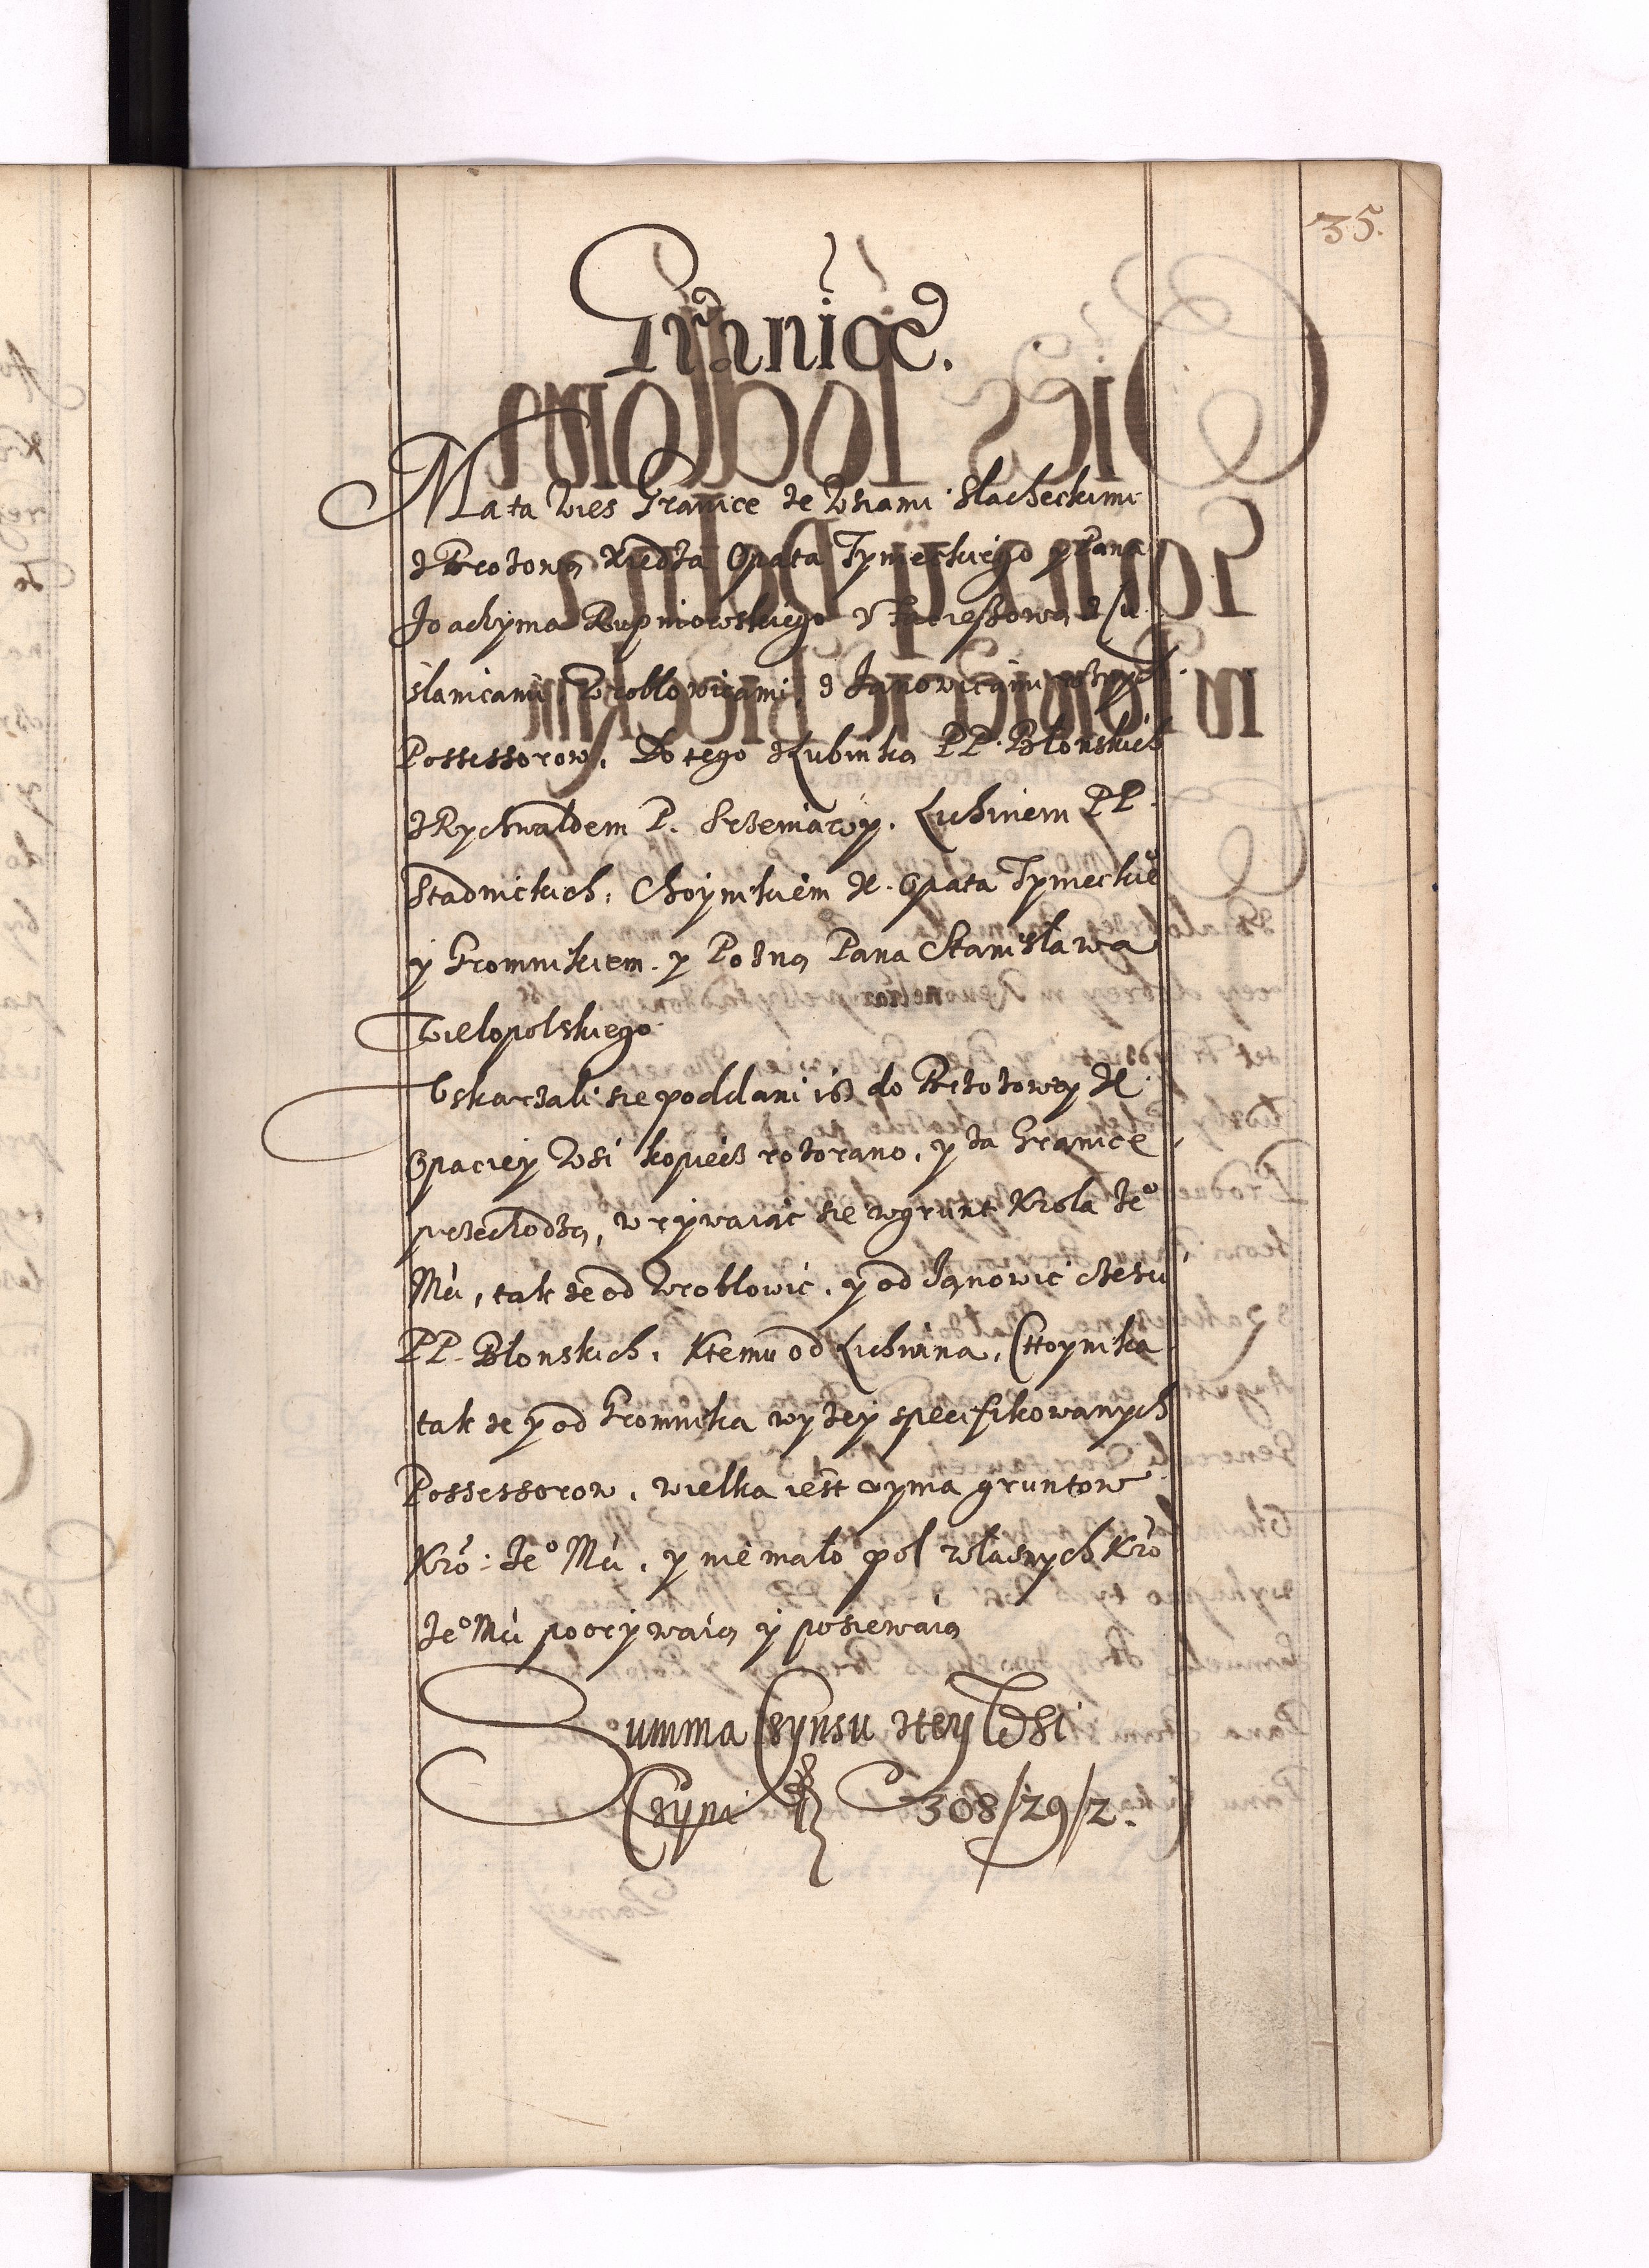 35.
Granice.
Ma ta Wies Granice ze Wsiami Slacheckimi
z Brozową Xiedza Opata Tynieckiego y Pana
Joachyma Rupniowskiego
slanicami, Wroblowicami, z Janowicami
Possessorow. Do tego z Lubinką PP. Błonskich
z Rychwałdem P. Lichwinem PP.
Stadnickich. Choynikiem X. Opata Tynieckieo
y Gromnikiem y Poźną Pana Stanisława
Wielopolskiego
Uskarzali sie poddani isz do Brzozowey X.
Opaciey Wsi kopiecz rozorano, y za Granice
przechodzą, wrywaiąc sie w grunt Krola Jeo
Mći, takze od Wroblowic, y od Janowic
PP. Błonskich, Ktemu od Lichwina, Choynika
takze y od Gromnika wyzey specifikowanych
Possessorow, wielka iest uyma gruntow
Kro: Jeo Mći, y niemało pol własnych Kro
Jeo Mći poorywaią y posiewaią
Summa Czynsu z tey Wsi
Czyni fl 308/29/2.